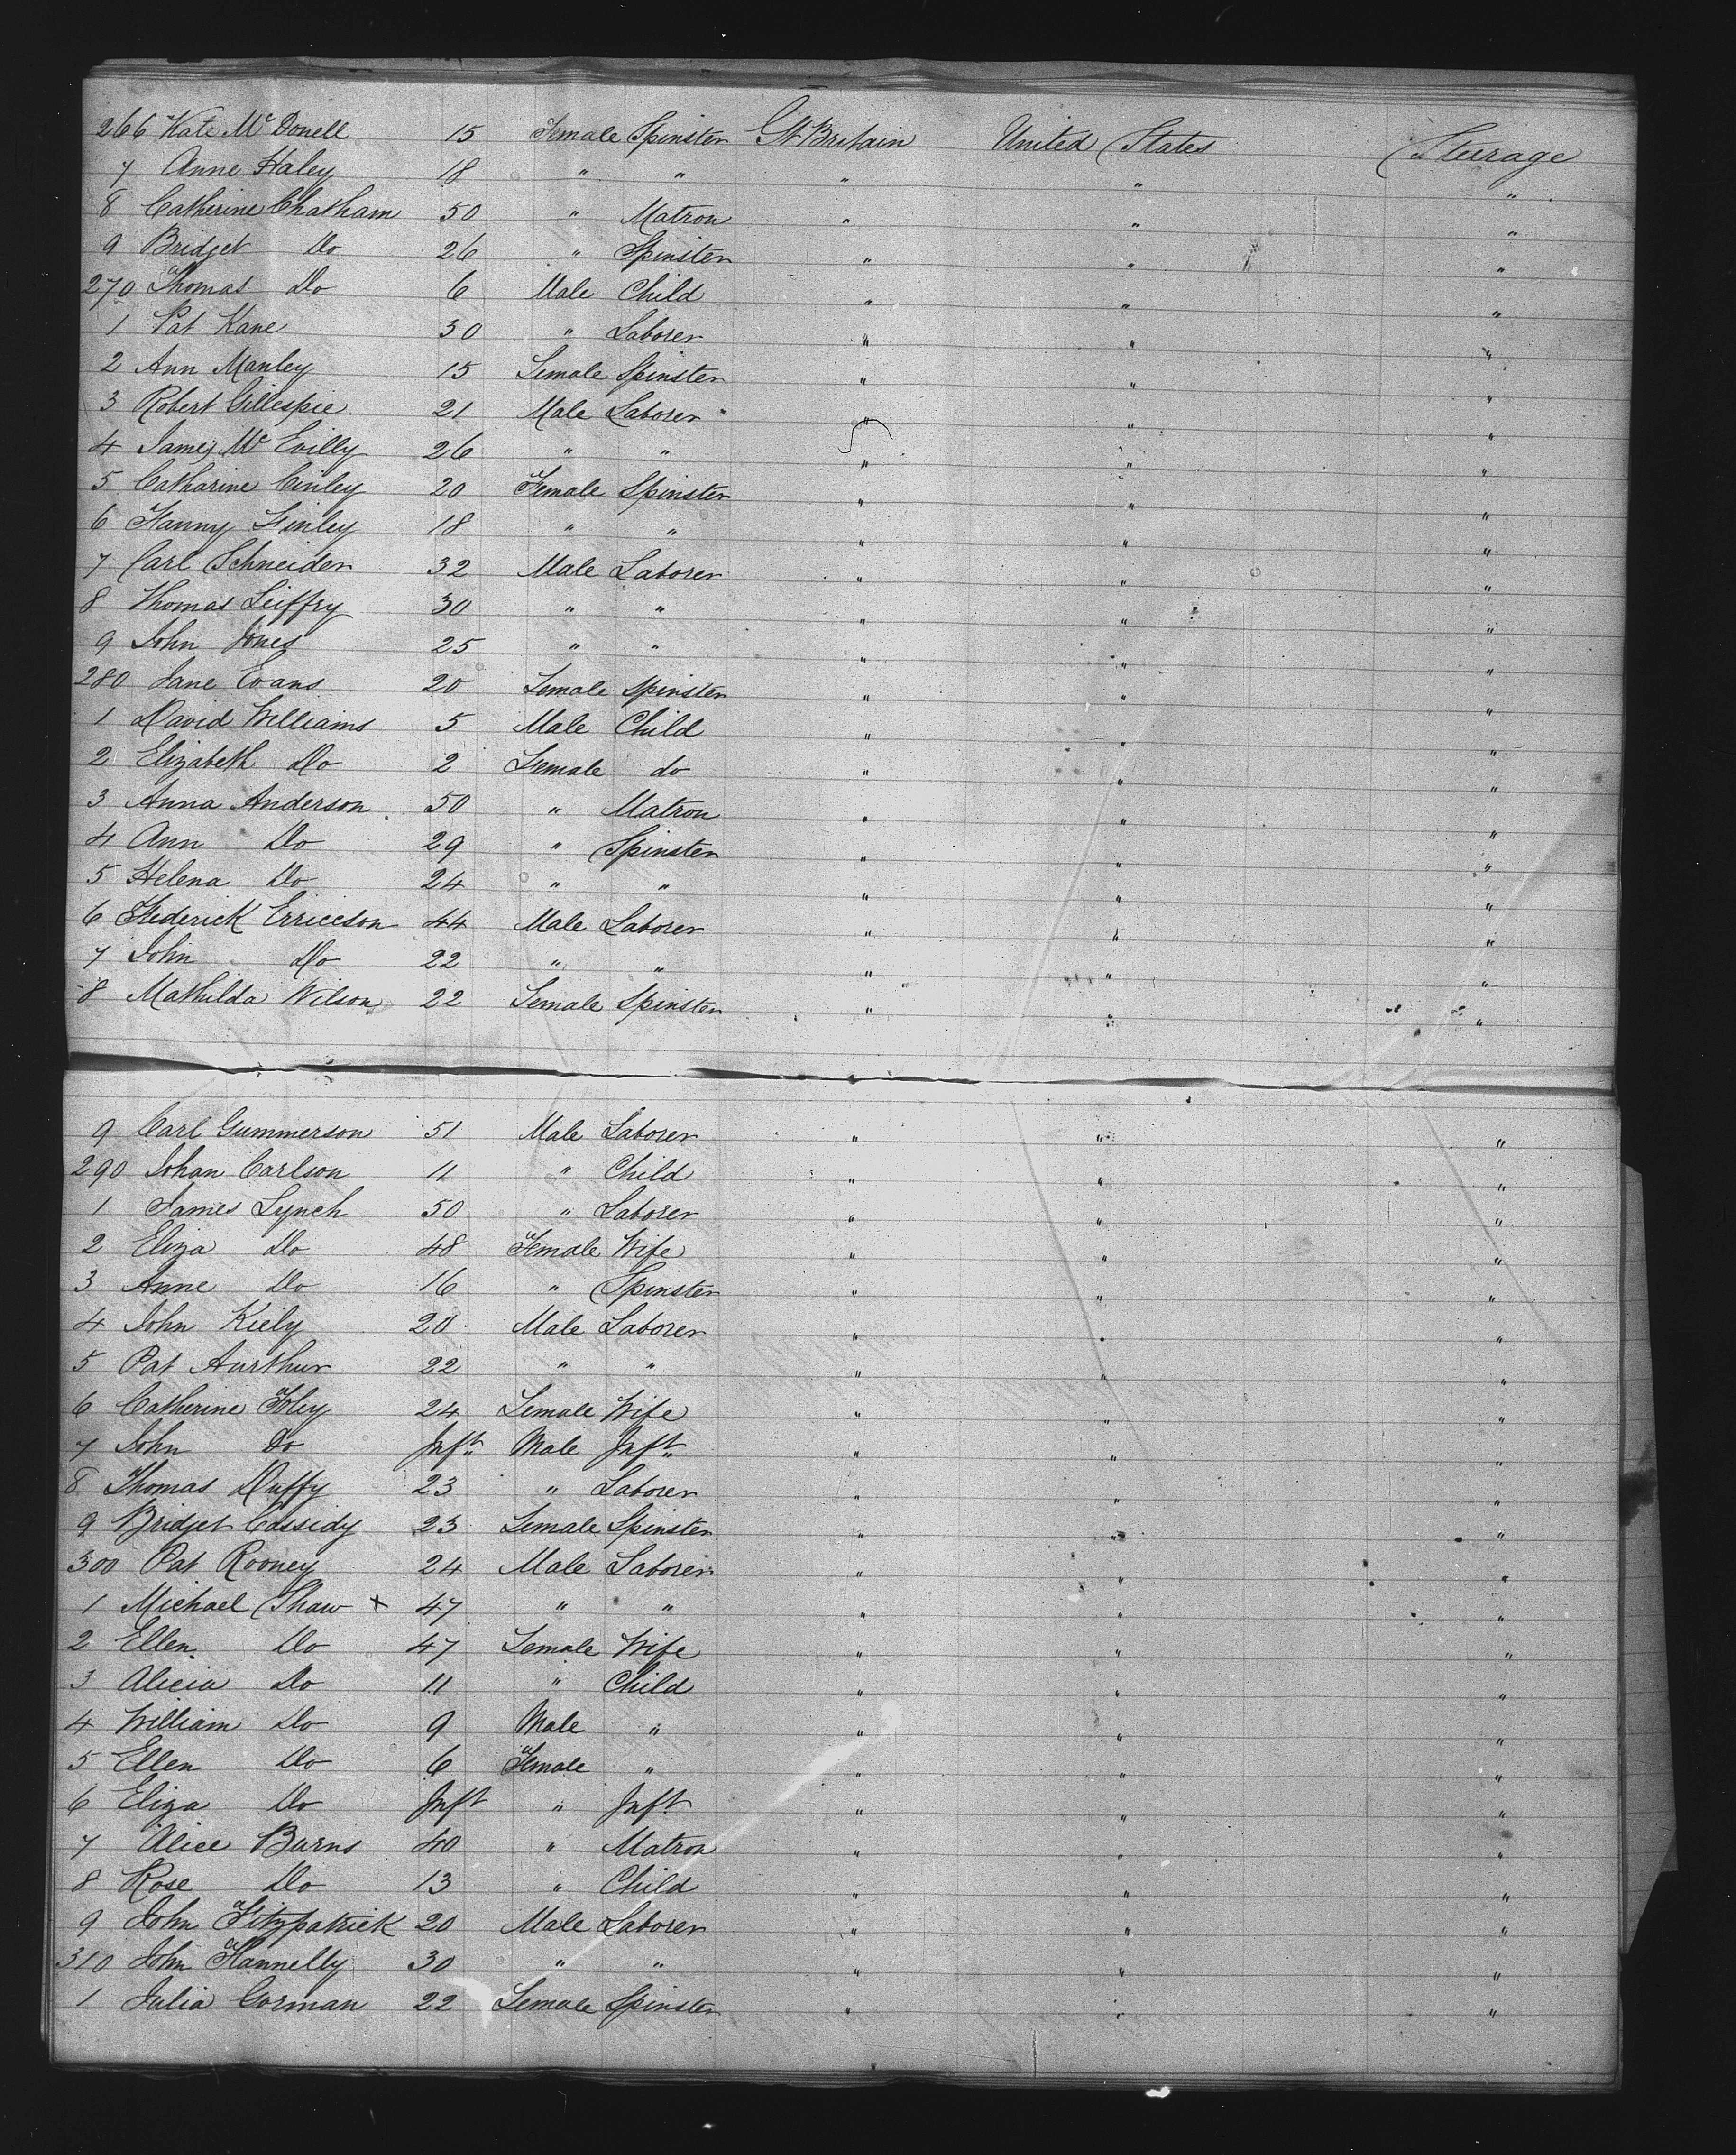 266 Kate McDonell 15 Female Spinster Gt Britain United States Steerage
7 Anne Haley 18 " " " " "
8 Catherine Chatham 50 " Matron " " "
9 Bridget Do 26 " Spinster " " "
270 Thomas Do 6 Male Child " " "
1 Pat Kane 30 " Laborer " " "
2 Ann Manley 15 Female Spinster " " "
3 Robert Gillespie 21 Male Laborer " " "
4 James McEvilly 26 " " " " "
5 Catharine Cinley 20 Female Spinster " " "
6 Fanny Finley 18 " " " " "
7 Carl Schneider 32 Male Laborer " " "
8 Thomas 30 " " " " "
9 John Jones 25 " " " " "
280 Jane Evans 20 Female Spinster " " "
1 David Williams 5 Male Child " " "
2 Elizabeth Do 2 Female do " " "
3 Anna Anderson 50 " Matron " " "
4 Ann Do 29 " Spinster " " "
5 Helena Do 24 " " " " "
6 Frederick Erricson 44 Male Laborer " " "
7 John Do 22 " " " " "
8 Mathilda Wilson 22 Female Spinster " " "
9 Carl Gummerson 51 Male Laborer " " "
290 Johan Carlson 11 " Child " " "
1 James Lynch 50 " Laborer " " "
2 Eliza Do 48 Female Wife " " "
3 Anne Do 16 " Spinster " " "
4 John Kiely 20 Male Laborer " " "
5 Pat Aurthur 22 " " " " "
6 Catherine Foley 24 Female Wife " " "
7 John Do Inft Male Inft " " "
8 Thomas Duffy 23 " Laborer " " "
9 Bridget Cassidy 23 Female Spinster " " "
300 Pat Rooney 24 Male Laborer " " "
1 Michael Shaw x 47 " " " " "
2 Ellen Do 47 Female Wife " " "
3 Alicia Do 11 " Child " " "
4 William Do 9 Male " " " "
5 Ellen Do 6 Female " " " "
6 Eliza Do Inft " Inft " " "
7 Alice Burns 40 " Matron " " "
8 Rose Do 13 " Child " " "
9 John Fitzpatrick 20 Male Laborer " " "
310 John Flannelly 30 " " " " "
1 Julia Gorman 22 Female Spinster " " "